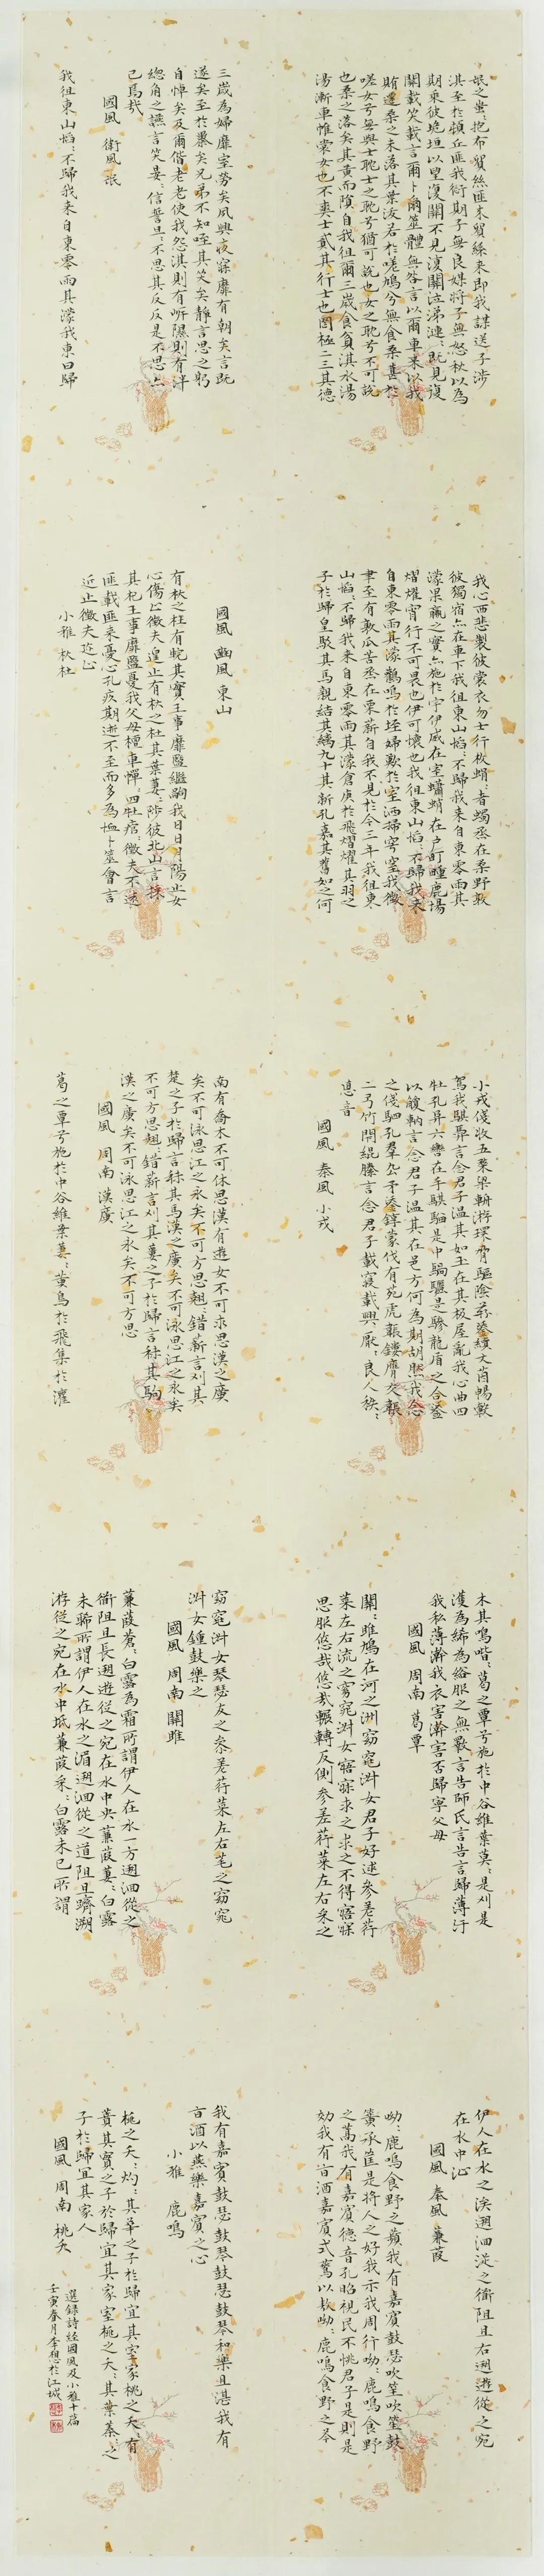 氓之蚩:抱布貿絲匪来貿絲来即我謀送子涉
淇至於頓丘匪我愆期子無良媒將子無怒秋以為
期乘彼垝垣以望復關不見復關泣涕漣:既見復
關載笑載言爾卜爾筮體無咎言以爾車来以我
賄遷桑之未落其葉沃若於嗟鳩兮無食桑葚於
嗟女兮無與士耽士之耽兮猶可說也女之耽兮不可說
也桑之落矣其黃而隕自我徂爾三歲食貧淇水湯
湯漸車帷裳女也不爽士貳其行士也罔極二三其德
三歲為婦靡室勞矣夙興夜寐靡有朝矣言既
遂矣至於暴矣兄弟不知咥其笑矣靜言思之躬
自悼矣及爾偕老老使我怨淇則有岸隰則有泮
總角之讌言笑晏:信誓旦:不思其反反是不思亦
已焉哉
國風 衛風 氓
我徂東山慆:不歸我来自東零雨其濛我東曰歸
我心西悲製彼裳衣勿士行枚蜎:者蠋烝在桑野敦
彼獨宿亦在車下我徂東山慆:不歸我来自東零雨其
濛果臝之實亦施於宇伊威在室蠨蛸在户町畽鹿場
熠燿宵行不可畏也伊可懷也我徂東山慆:不歸我来
自東零雨其濛鸛鳴於垤婦歎於室洒掃穹窒我徵
聿至有敦瓜苦烝在栗薪自我不見於今三年我徂東
山慆:不歸我来自東零雨其濛倉庚於飛熠燿其羽之
子於歸皇駁其馬親結其縭九十其新孔嘉其舊如之何
國風 豳風 東山
有杕之杜有睆其實王事靡盬繼嗣我日日月陽止女
心傷止徵夫遑止有杕之杜其葉萋:陟彼北山言採
其杞王事靡盬憂我父母檀車幝:四牡痯:徵夫不遠
匪載匪来憂心孔疚期逝不至而多為恤卜筮會言
近止徵夫迩止
小雅 杕杜
小戎俴收五楘梁輈游環脅驅陰靷鋈續文茵暢轂
駕我騏馵言念君子溫其如玉在其板屋亂我心曲四
牡孔阜六轡在手騏騮是中騧驪是驂龍盾之合鋈
以觼軜言念君子溫其在邑方何為期胡然我念
之俴駟孔羣厹矛鋈錞蒙伐有苑虎韔鏤膺交韔
二弓竹閉緄縢言念君子載寢載興厭:良人秩:
德音
國風 秦風 小戎
南有喬木不可休思漢有遊女不可求思漢之廣
矣不可泳思江之永矣不可方思翹:錯薪言刈其
楚之子於歸言秣其馬漢之廣矣不可泳思江之永矣
不可方思翹:錯薪言刈其蔞之子於歸言秣其駒
漢之廣矣不可泳思江之永矣不可方思
國風 周南 漢廣
葛之覃兮施於中谷維葉萋:黃鳥於飛集於灌
木其鳴喈:葛之覃兮施於中谷維葉莫:是刈是
濩為絺為綌服之無斁言告師氏言告言歸薄汙
我私薄澣我衣害澣害否歸寧父母
國風 周南 葛覃
關:雎鳩在河之洲窈窕淑女君子好逑參差荇
菜左右流之窈窕淑女寤寐求之求之不得寤寐
思服悠哉悠哉輾轉反側參差荇菜左右采之
窈窕淑女琴瑟友之參差荇菜左右芼之窈窕
淑女鍾鼓樂之
國風 周南 關雎
蒹葭蒼:白露為霜所謂伊人在水一方遡洄從之
道阻且長遡遊從之宛在水中央蒹葭萋:白露
未晞所謂伊人在水之湄遡洄從之道阻且躋溯
游從之宛在水中坻蒹葭采:白露未已所謂
伊人在水之涘遡洄從之道阻且右遡遊從之宛
在水中沚
國風 秦風 蒹葭
呦:鹿鳴食野之蘋我有嘉賓鼓瑟吹笙吹笙鼓
簧承筐是將人之好我示我周行呦:鹿鳴食野
之蒿我有嘉賓德音孔昭視民不恌君子是則是
効我有旨酒嘉賓式燕以敖呦:鹿鳴食野之芩
我有嘉賓鼓瑟鼓琴鼓瑟鼓琴和樂且湛我有
旨酒以燕樂嘉賓之心
小雅 鹿鳴
桃之夭:灼:其華之子於歸宜其室家桃之夭:有
蕡其實之子於歸宜其家室桃之夭:其葉蓁:之
子於歸宜其家人
國風 周南 桃夭
選錄詩經國風及小雅十篇
壬寅春月李想於江城